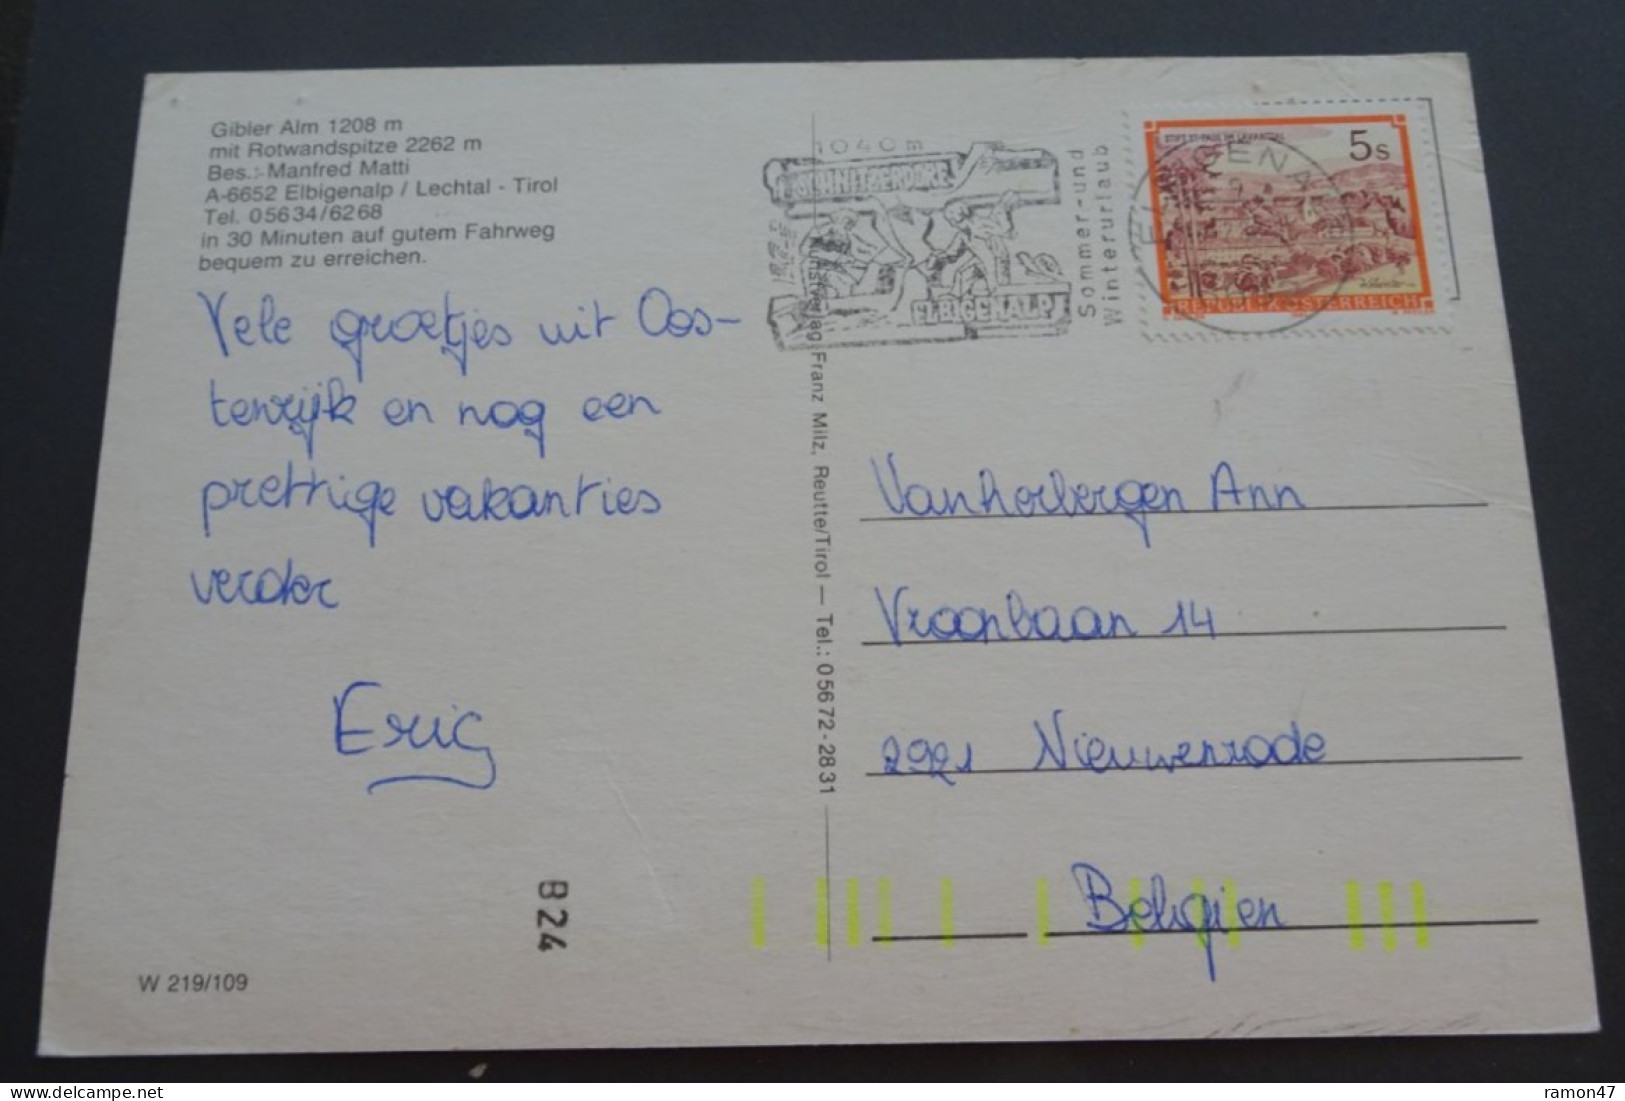 Gibler Alm 1208 m
mit Rotwandspitze 2262 m
Bes.: Manfred Matti
A-6652 Elbigenalp / Lechtal - Tirol
Tel. 05634/6268
in 30 Minuten auf gutem Fahrweg
bequem zu erreichen.
Vele groetjes uit Oos-
tenrijk en nog een
prettige vakanties
verder
Eric
W 219/109
B24
Kunstverlag Franz Milz, Reutte/Tirol — Tel.: 05672-2831
1040 m
SCHNITZERDORF
ELBIGENALP
Sommer-und
Winterurlaub
STIFT ST. PAUL IM LAVANTTAL
5s
REPUBLIK ÖSTERREICH
Vanherbergen Ann
Vroonbaan 14
2921 Nieuwenrode
Belgien
ramon47